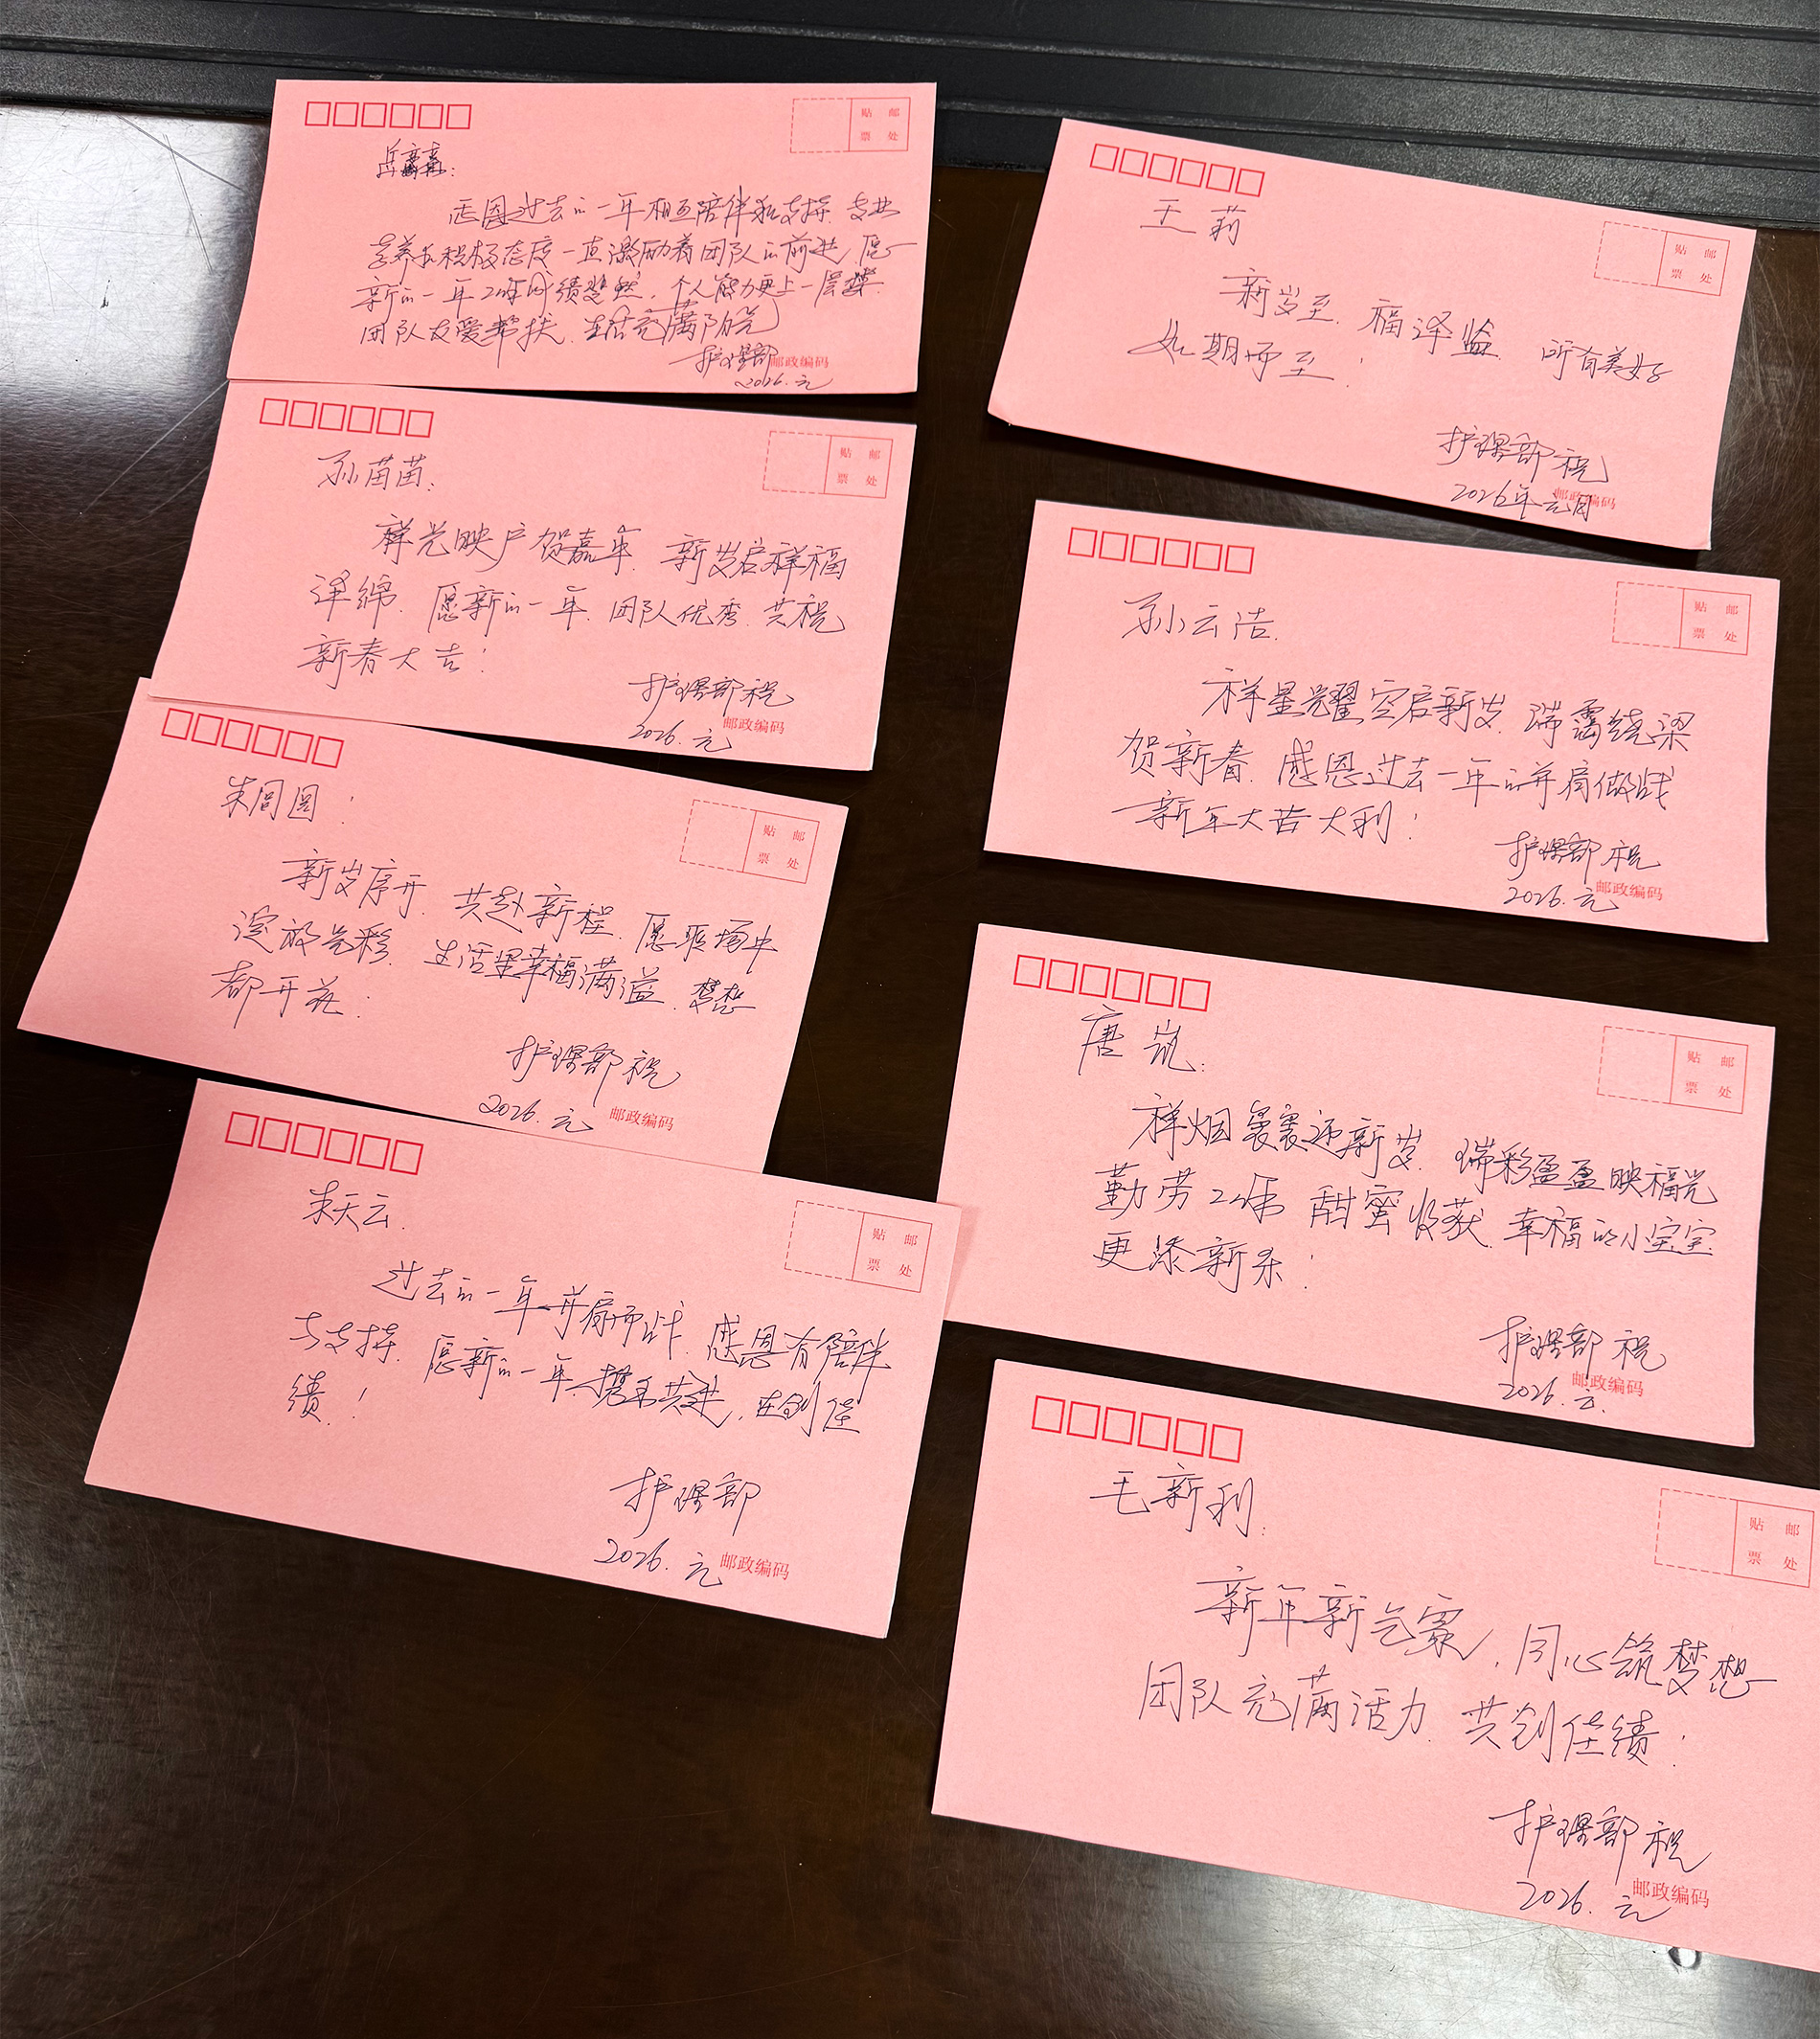 贴 邮
票 处
感恩过去的一年相互陪伴和支持.专业
素养和积极态度一直激励着团队的前进.愿
新的一年工作成绩斐然,个人能力更上一层楼.
团队友爱帮扶.生活充满阳光
护理部
邮政编码
2026.元
贴 邮
票 处
孙苗苗:
祥光映户贺嘉年.新岁启祥福
泽绵.愿新的一年.团队优秀.共祝
新春大吉!
护理部祝
邮政编码
2026.元
贴 邮
票 处
朱圆圆:
新岁序开.共赴新程.愿职场中
绽放光彩.生活里幸福满溢.梦想
都开花.
护理部祝
2026.元
邮政编码
贴 邮
票 处
朱天云.
过去的一年并肩而战.感恩有陪伴
与支持.愿新的一年.携手共进,在创佳
绩!
护理部
2026.元
邮政编码
贴 邮
票 处
王莉
新岁至.福泽临.所有美好
如期而至!
护理部祝
2026年元月
邮政编码
贴 邮
票 处
孙云洁.
祥星光耀空启新岁.瑞霭绕梁
贺新春.感恩过去一年的并肩做战
新年大吉大利!
护理部祝
2026.元
邮政编码
贴 邮
票 处
唐岚:
祥烟袅袅迎新岁.瑞彩盈盈映福光
勤劳工作 甜蜜收获.幸福的小宝宝
更添新乐!
护理部祝
2026.元.
邮政编码
贴 邮
票 处
毛新利:
新年新气象,同心筑梦想
团队充满活力.共创佳绩!
护理部祝
2026.元
邮政编码